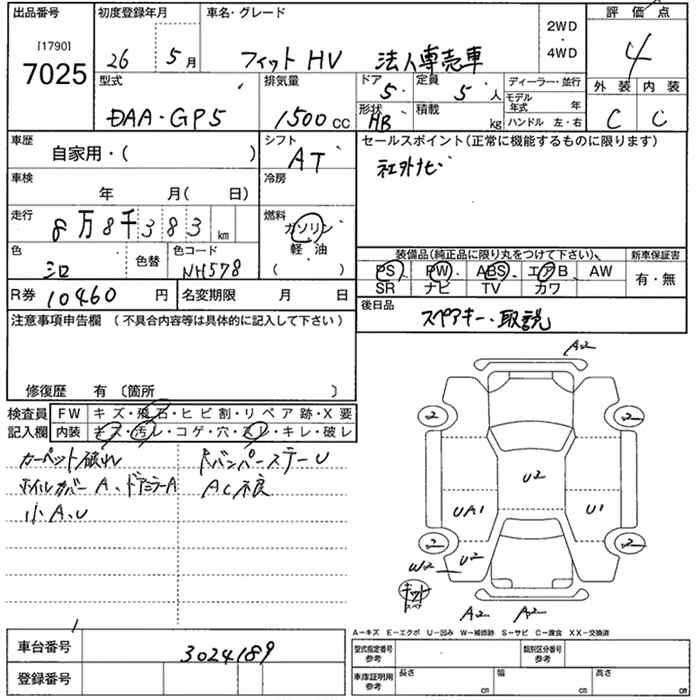 出品番号 初度登録年月 車名・グレード 2WD・4WD 評価点
[1790]
7025
26 5月 フィットHV 法人専売車 4
型式 排気量 ドア 定員 ディーラー・並行 外装 内装
DAA・GP5 1500cc 5 5人 モデル年式 年 C C
形状 HB 積載 kg ハンドル 左・右
車歴 自家用・( ) シフト AT
セールスポイント(正常に機能するものに限ります)
社外ナビ
車検 年 月( 日) 冷房
走行 8万8千383km 燃料 ガソリン・軽油
( )
色 シロ 色替 色コード NH578
装備品(純正品に限り丸をつけて下さい) 新車保証書
PS PW ABS エアB AW 有・無
SR ナビ TV カワ
R券 10460円 名変期限 月 日
後日品 スペアキー・取説
注意事項申告欄 (不具合内容等は具体的に記入して下さい)
修復歴 有 〔箇所 〕
検査員記入欄 FW キズ・飛石・ヒビ割・リペア跡・X要
内装 キズ・汚レ・コゲ・穴・スレ・キレ・破レ
カーペット破れ バンパーステーU
ホイルカバーA、ドアミラーA AC不良
小A、U
A2
2 2
U2
UA1 U1
2 2
W2 U2
キット
スペ
A2 A2
A-キズ E-エクボ U-凹み W-補修跡 S-サビ C-腐食 XX-交換済
車台番号 3024189
型式指定番号 参考 類別区分番号 参考
登録番号
車庫証明用 参考 長さ cm 幅 cm 高さ cm